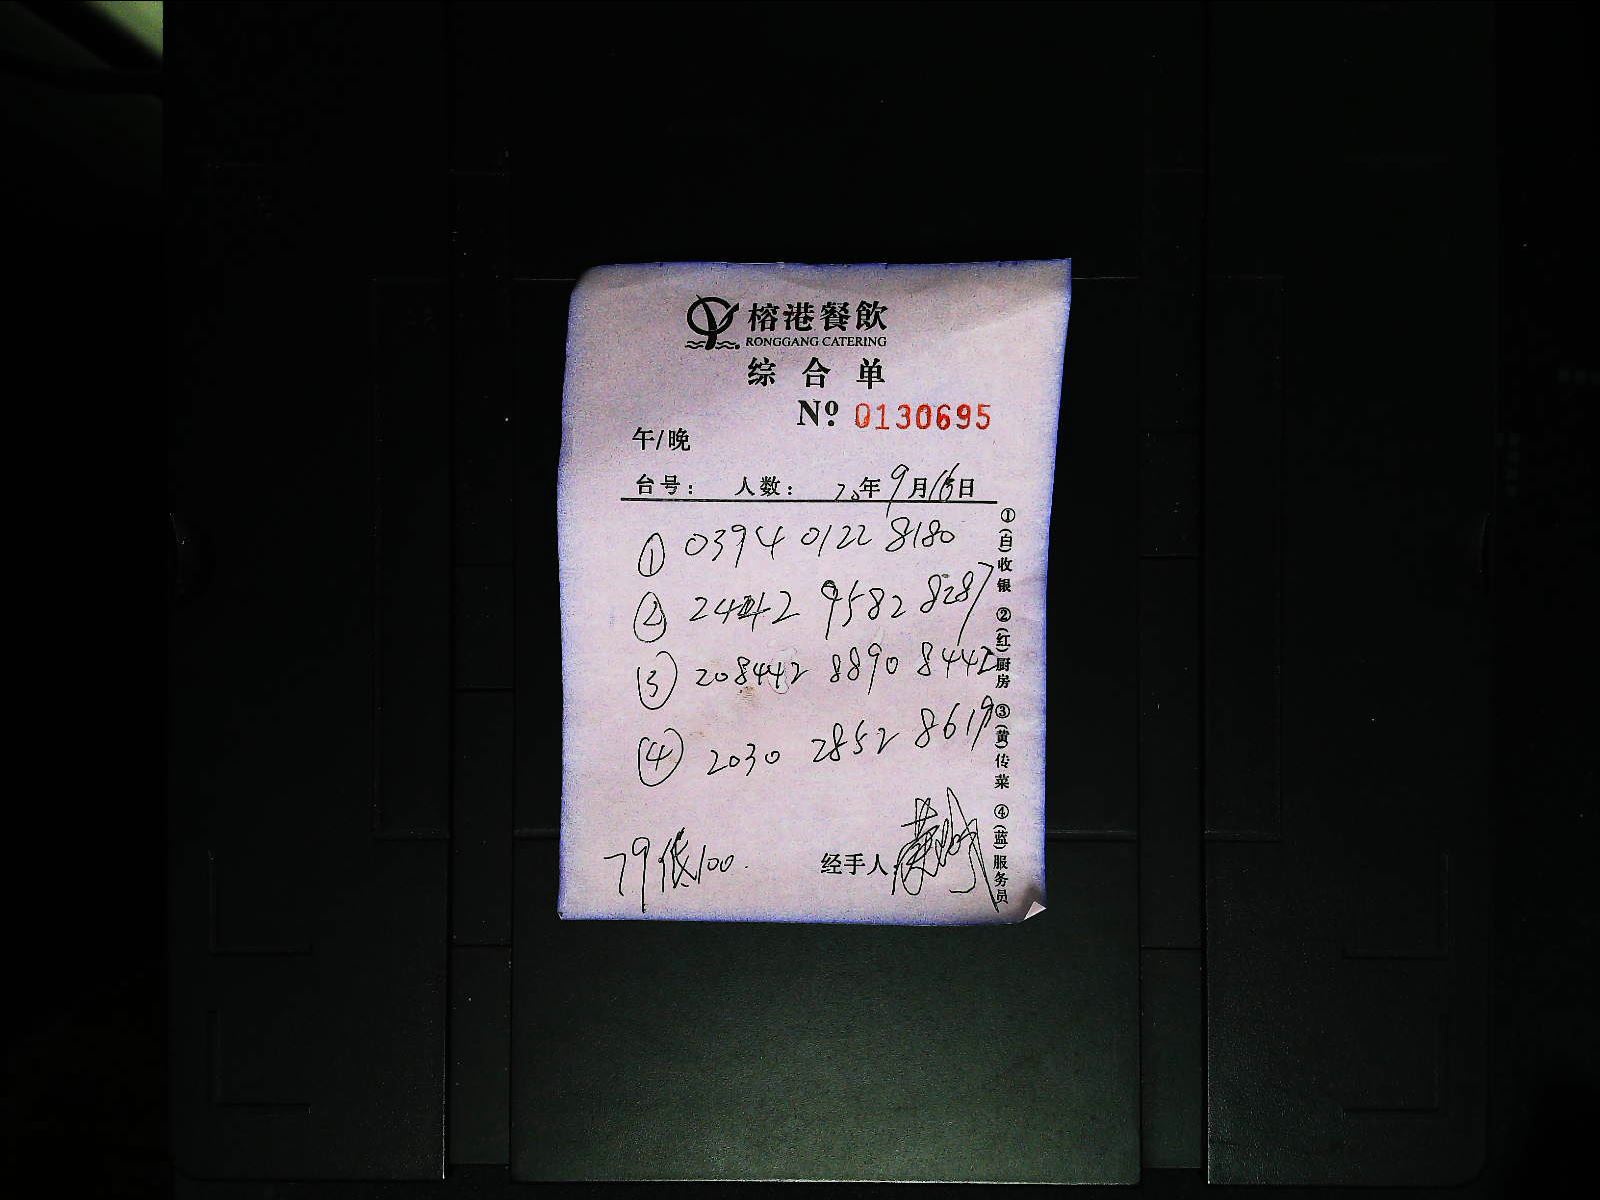 榕港餐飲
RONGGANG CATERING
综合单
Nº 0130695
午/晚
台号： 人数： 20年9月16日
① 0394 0122 8180
② 2442 9582 8287
③ 208442 8890 8442
④ 2030 2852 8619
79低100.
经手人：
①(白)收银 ②(红)厨房 ③(黄)传菜 ④(蓝)服务员